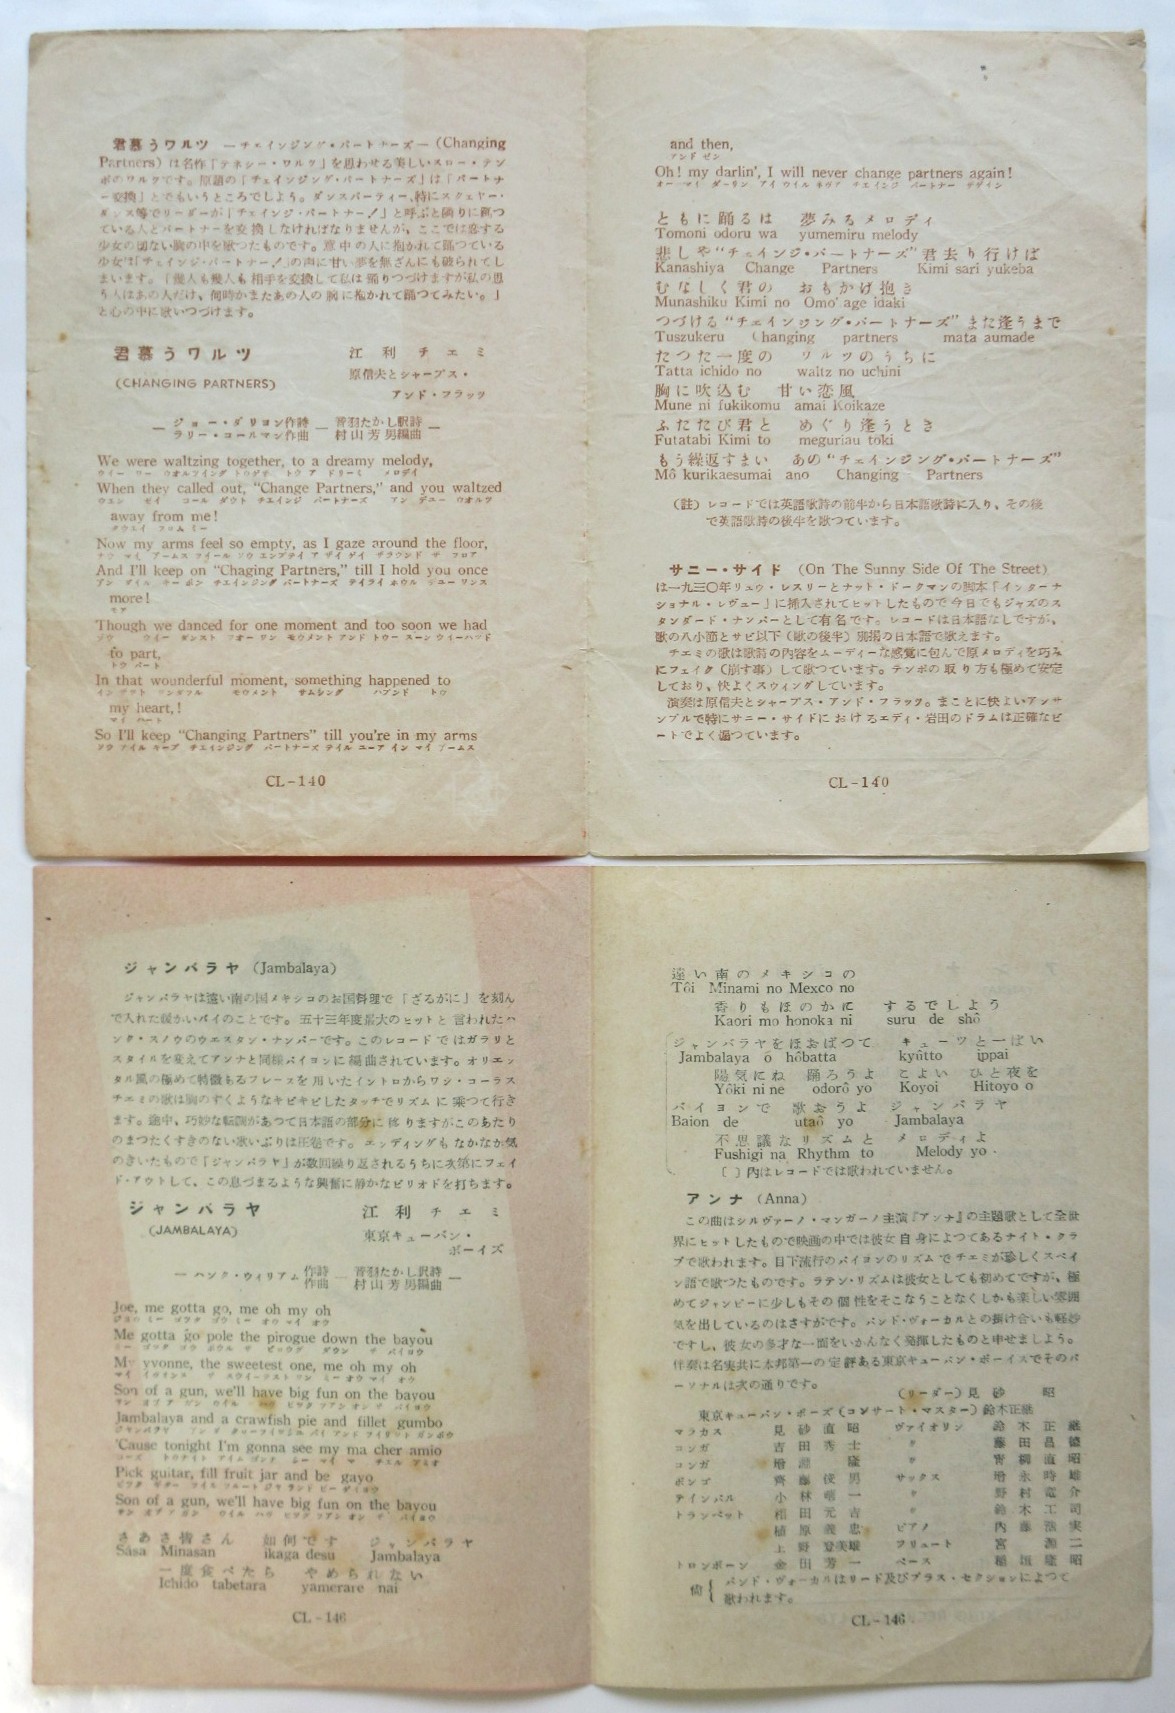 君慕うワルツ —チェインジング・パートナーズ— (Changing
Partners) は名作「テネシー・ワルツ」を思わせる美しいスロー・テン
ポのワルツです。原題の「チェインジング・パートナーズ」は「パートナ
ー変換」とでもいうところでしよう。ダンスパーティー、特にスクェヤー・
ダンス等でリーダーが「チェインジ・パートナー！」と呼ぶと隣りに親つ
ている人とパートナーを変換しなければなりませんが、ここでは恋する
少女の切ない胸の中を歌つたものです。意中の人に抱かれて踊つている
少女は「チェインジ・パートナー！」の声に甘い夢を無ざんにも破られてし
まいます。「幾人も幾人も相手を変換して私は踊りつづけますが私の思
う人はあの人だけ、何時かまたあの人の腕に抱かれて踊つてみたい。」
と心の中に歌いつづけます。
君慕うワルツ 江利チエミ
(CHANGING PARTNERS) 原信夫とシャープス・
アンド・フラッツ
— ジョー・ダリヨン作詩 — 音羽たかし訳詩 —
ラリー・コールマン作曲 村山芳男編曲
We were waltzing together, to a dreamy melody,
When they called out, “Change Partners,” and you waltzed
away from me!
Now my arms feel so empty, as I gaze around the floor,
And I'll keep on “Chaging Partners,” till I hold you once
more!
Though we danced for one moment and too soon we had
to part,
トウ パート
In that wounderful moment, something happened to
my heart,!
マイ ハート
So I'll keep “Changing Partners” till you're in my arms
CL-140
and then,
アンド ゼン
Oh! my darlin', I will never change partners again!
オー マイ ダーリン アイ ウイル ネヴァ チエインジ パートナー アゲイン
ともに踊るは 夢みるメロディ
Tomoni odoru wa yumemiru melody
悲しや“チェインジ・パートナーズ”君去り行けば
Kanashiya Change Partners Kimi sari yukeba
むなしく君の おもかげ抱き
Munashiku Kimi no Omo' age idaki
つづける“チェインジング・パートナーズ”また逢うまで
Tuszukeru Changing partners mata aumade
たつた一度の ワルツのうちに
Tatta ichido no waltz no uchini
胸に吹込む 甘い恋風
Mune ni fukikomu amai Koikaze
ふたたび君と めぐり逢うとき
Futatabi Kimi to meguriau tôki
もう繰返すまい あの“チェインジング・パートナーズ”
Mô kurikaesumai ano Changing Partners
(註) レコードでは英語歌詩の前半から日本語歌詩に入り、その後
で英語歌詩の後半を歌つています。
サニー・サイド (On The Sunny Side Of The Street)
は一九三〇年リュウ・レスリーとナット・ドークマンの脚本「インターナ
ショナル・レヴュー」に挿入されてヒットしたもので今日でもジャズのス
タンダード・ナンバーとして有名です。レコードは日本語なしですが、
歌の八小節とサビ以下（歌の後半）別揚の日本語で歌えます。
チエミの歌は歌詩の内容をムーディーな感覚に包んで原メロディを巧み
にフェイク（崩す事）して歌つています。テンポの取り方も極めて安定
しており、快よくスウィングしています。
演奏は原信夫とシャープス・アンド・フラッツ。まことに快よいアンサ
ンブルで特にサニー・サイドにおけるエディ・岩田のドラムは正確なビ
ートでよく凅つています。
CL-140
ジャンバラヤ (Jambalaya)
ジャンバラヤは遠い南の国メキシコのお国料理で「ざるがに」を刻ん
で入れた暖かいパイのことです。五十三年度最大のヒットと言われたハ
ンク・スノウのウエスタン・ナンバーです。このレコードではガラリと
スタイルを変えてアンナと同様バイヨンに編曲されています。オリエン
タル風の極めて特徴あるフレーズを用いたイントロからワン・コーラス
チエミの歌は胸のすくようなキビキビしたタッチでリズムに乗つて行き
ます。途中、巧妙な転調があつて日本語の部分に移りますがこのあたり
のまつたくすきのない歌いぶりは圧巻です。エンディングもなかなか気
のきいたもので「ジャンバラヤ」が数回繰り返されるうちに次第にフェイ
ド・アウトして、この息づまるような興奮に静かなピリオドを打ちます。
ジャンバラヤ 江利チエミ
(JAMBALAYA) 東京キューバン・
ボーイズ
— ハンク・ウィリアム 作詩 — 音羽たかし訳詩 —
作曲 村山芳男編曲
Joe, me gotta go, me oh my oh
Me gotta go pole the pirogue down the bayou
My yvonne, the sweetest one, me oh my oh
Son of a gun, we'll have big fun on the bayou
Jambalaya and a crawfish pie and fillet gumbo
'Cause tonight I'm gonna see my ma cher amio
Pick guitar, fill fruit jar and be gayo
Son of a gun, we'll have big fun on the bayou
さあさ皆さん 如何です ジャンバラヤ
Sâsa Minasan ikaga desu Jambalaya
一度食べたら やめられない
Ichido tabetara yamerare nai
CL-146
遠い南のメキシコの
Tôi Minami no Mexco no
香りもほのかに するでしよう
Kaori mo honoka ni suru de shô
ジャンバラヤをほおばつて キューツと一ぱい
Jambalaya ô hôbatta kyûtto ippai
陽気にね 踊ろうよ こよい ひと夜を
Yôki ni ne odorô yo Koyoi Hitoyo o
バイヨンで 歌おうよ ジャンバラヤ
Baion de utaô yo Jambalaya
不思議なリズムと メロディよ
Fushigi na Rhythm to Melody yo
〔 〕内はレコードでは歌われていません。
アンナ (Anna)
この曲はシルヴァーノ・マンガーノ主演『アンナ』の主題歌として全世
界にヒットしたもので映画の中では彼女自身によつてあるナイト・クラ
ブで歌われます。目下流行のバイヨンのリズムでチエミが珍しくスペイ
ン語で歌つたものです。ラテン・リズムは彼女としても初めてですが、極
めてジャンピーに少しもその個性をそこなうことなくしかも楽しい雰囲
気を出しているのはさすがです。バンド・ヴォーカルとの掛け合いも軽妙
ですし、彼女の多才な一面をいかんなく発揮したものと申せましよう。
伴奏は名実共に本邦第一の定評ある東京キューバン・ボーイズでそのパ
ーソナルは次の通りです。
(リーダー) 見砂 昭
東京キューバン・ボーズ (コンサート・マスター) 鈴木正継
マラカス 見砂直昭 ヴァイオリン 鈴木正継
コンガ 吉田秀士 〃 藤田昌
コンガ 増淵隆 〃 青柳直昭
ボンゴ 齊藤俊男 サックス 増永時雄
テインバル 小林萠一 〃 野村竜介
トランペット 稲田元吉 〃 鈴木工司
植原義忠 ピアノ 内藤法実
上野登美雄 フリュート 宮源二
トロンボーン 金田芳一 ベース 稲垣康昭
備 { バンド・ヴォーカルはリード及びブラス・セクションによつて
歌われます。
CL-146